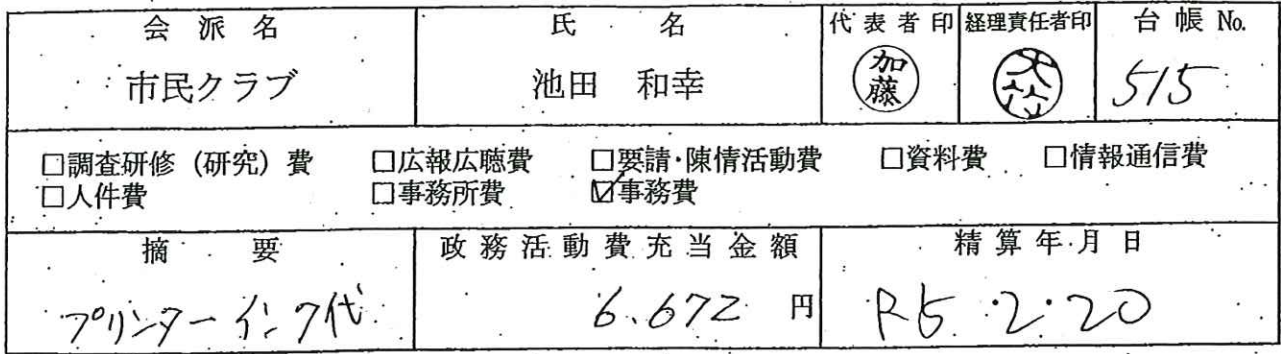 会派名 氏名 代表者印 経理責任者印 台帳No.
市民クラブ 池田 和幸 加藤 大竹 515
□調査研修（研究）費 □広報広聴費 □要請・陳情活動費 □資料費 □情報通信費
□人件費 □事務所費 ☑事務費
摘要 政務活動費充当金額 精算年月日
プリンターインク代 6.672円 R5・2・20